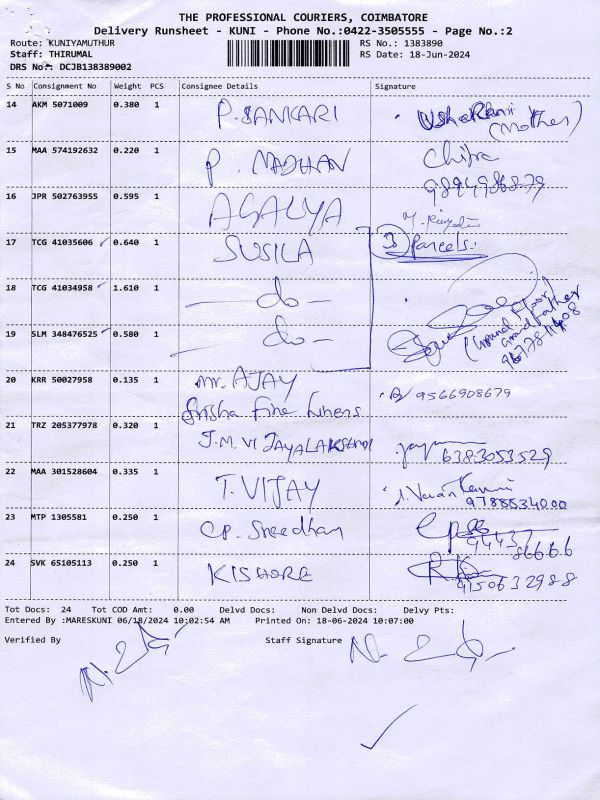 THE PROFESSIONAL COURIERS, COIMBATORE
Delivery Runsheet - KUNI - Phone No.:0422-3505555 - Page No.:2
Route: KUNIYAMUTHUR RS No.: 1383890
Staff: THIRUMAL RS Date: 18-Jun-2024
DRS No.: DCJB138389002
S No Consignment No Weight PCS Consignee Details Signature
14 AKM 5071009 0.380 1 P. SANKARI (Mother)
15 MAA 574192632 0.220 1 P. MADHAN Chitra
9894986879
16 JPR 502763955 0.595 1 AGALYA
17 TCG 41035606 0.640 1 SUSILA 3 Parcels.
18 TCG 41034958 1.610 1 -do-
19 SLM 348476525 0.580 1 -do- (Ground Floor)
Grand Father
20 KRR 50027958 0.135 1 Mr. AJAY 9566908679
Srisha Fine Linens
21 TRZ 205377978 0.320 1 J.M. VIJAYALAKSHMI
6383053529
22 MAA 301528604 0.335 1 T. VIJAY
9788534000
23 MTP 1305581 0.250 1 CP. Sreedhar
94437
86666
24 SVK 65105113 0.250 1 KISHORE
9150632988
Tot Docs: 24 Tot COD Amt: 0.00 Delvd Docs: Non Delvd Docs: Delvy Pts:
Entered By :MARESKUNI 06/18/2024 10:02:54 AM Printed On: 18-06-2024 10:07:00
Verified By Staff Signature